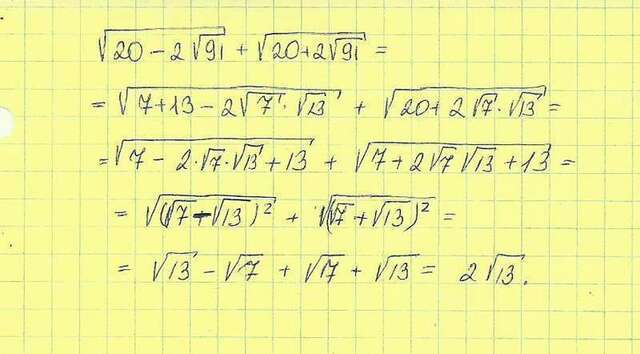 √(20 − 2√91) + √(20 + 2√91) =
= √(7 + 13 − 2√7 · √13) + √(20 + 2√7 · √13) =
= √(7 − 2·√7·√13 + 13) + √(7 + 2√7√13 + 13) =
= √((√7 − √13)²) + √((√7 + √13)²) =
= √13 − √7 + √7 + √13 = 2√13.